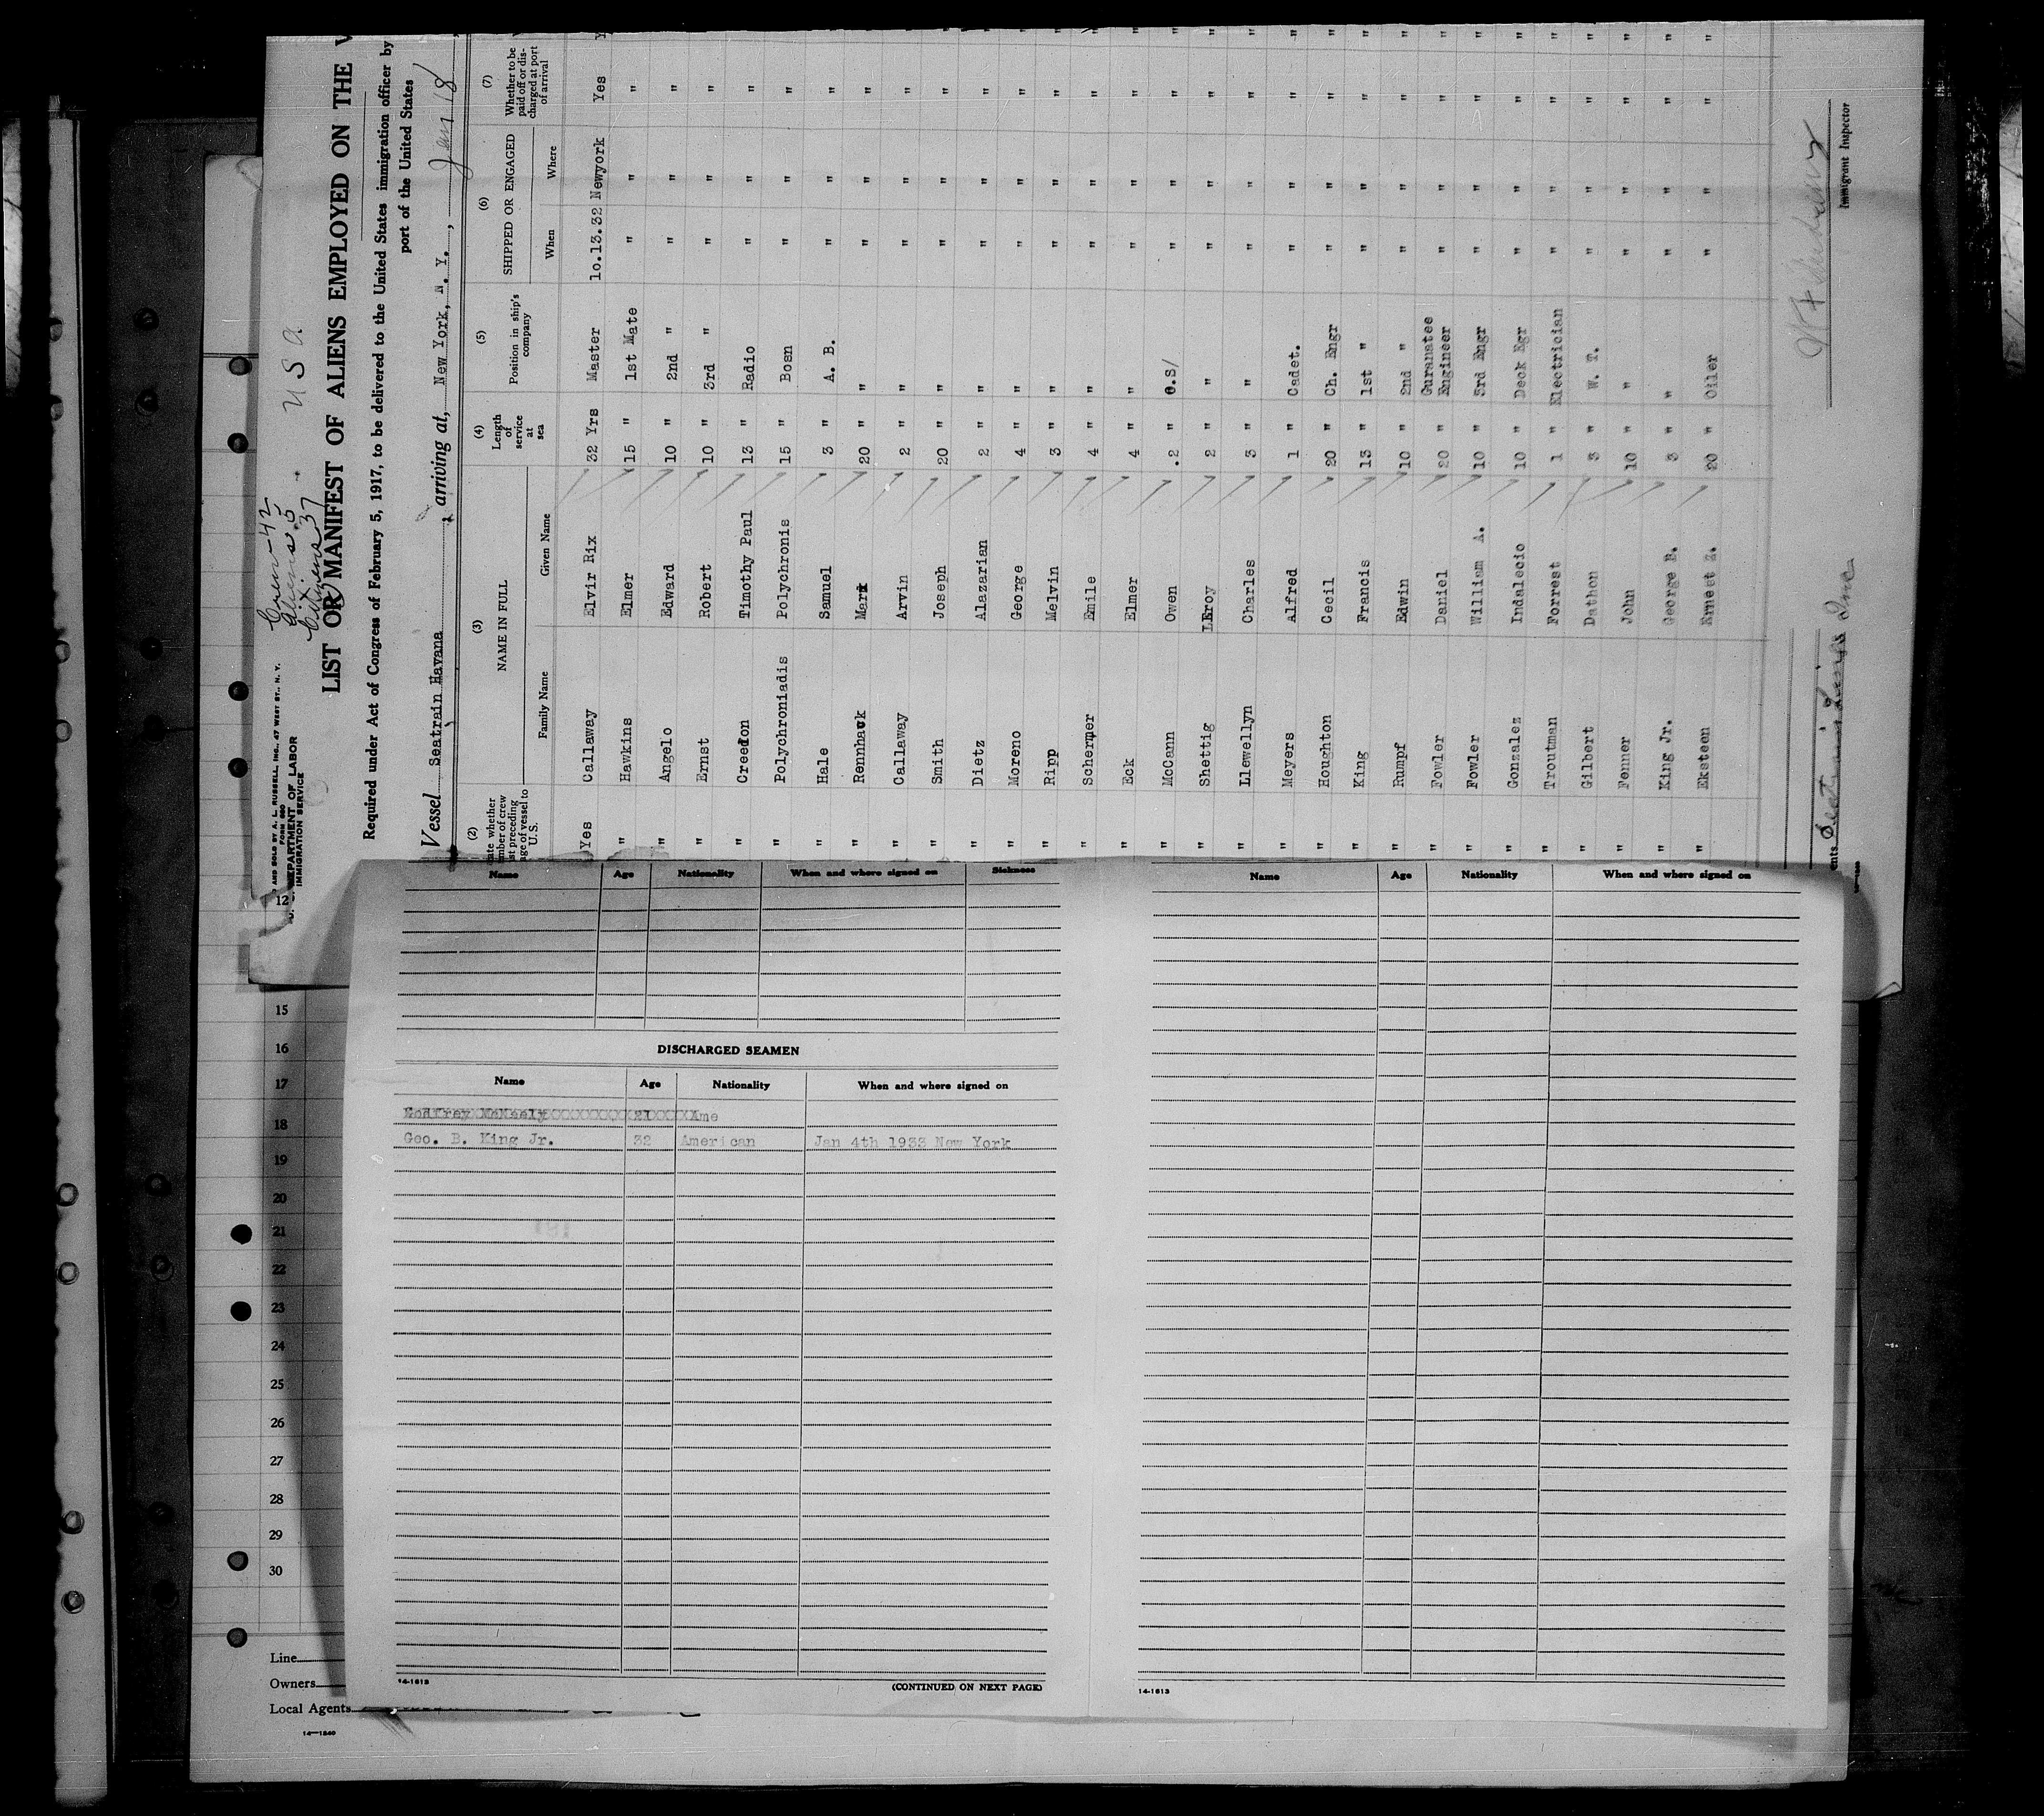 Crew-42
Aliens 5
Citizens 37
U S A
AND SOLD BY A. L. RUSSELL INC., 47 WEST ST., N. Y.
FORM 680
DEPARTMENT OF LABOR
IMMIGRATION SERVICE
LIST OR MANIFEST OF ALIENS EMPLOYED ON THE
Required under Act of Congress of February 5, 1917, to be delivered to the United States immigration officer by
port of the United States
Vessel Seatrain Havana, arriving at, New York, N. Y., Jan 18,
(2) (3) (4) (5) (6) (7)
NAME IN FULL Length of service at sea Position in ship's company SHIPPED OR ENGAGED Whether to be paid off or discharged at port of arrival
Family Name Given Name When Where
Yes Callaway Elvir Rix 32 Yrs Master 10.13.32 Newyork Yes
" Hawkins Elmer 15 " 1st Mate " " " "
" Angelo Edward 10 " 2nd " " " " "
" Ernst Robert 10 " 3rd " " " " "
" Creedon Timothy Paul 13 " Radio " " " "
" Polychroniadis Polychronis 15 " Bosn " " " "
" Hale Samuel 3 " A. B. " " " "
" Rennhack Mark 20 " " " " " "
" Callaway Arvin 2 " " " " " "
" Smith Joseph 20 " " " " " "
" Dietz Alazarian 2 " " " " " "
" Moreno George 4 " " " " " "
" Ripp Melvin 3 " " " " " "
" Schermer Emile 4 " " " " " "
" Eck Elmer 4 " " " " " "
" McCann Owen .2 " O.S/ " " " "
" Shettig LEroy 2 " " " " " "
" Llewellyn Charles 3 " " " " " "
" Meyers Alfred 1 " Cadet. " " " "
" Houghton Cecil 20 " Ch. Engr " " " "
" King Francis 13 " 1st " " " " "
" Rumpf Edwin 10 " 2nd " " " " "
" Fowler Daniel 20 " Guranatee Engineer " " " "
" Fowler William A. 10 " 3rd Engr " " " "
" Gonzalez Indalecio 10 " Deck Egr " " " "
" Troutman Forrest 1 " Electrician " " " "
" Gilbert Dathon 3 " W. T. " " " "
" Fenner John 10 " " " " " "
" King Jr. George B. 3 " " " " " "
" Eksteen Ernest Z. 20 " Oiler " " " "
Seatrain Lines Inc
Immigrant Inspector
Name Age Nationality When and where signed on Sickness
DISCHARGED SEAMEN
Name Age Nationality When and where signed on
Godfrey McNeely 21 Ame
Geo. B. King Jr. 32 American Jan 4th 1933 New York
14-1613
(CONTINUED ON NEXT PAGE)
Name Age Nationality When and where signed on
14-1613
12
15
16
17
18
19
20
21
22
23
24
25
26
27
28
29
30
Line
Owners
Local Agents
14-1540